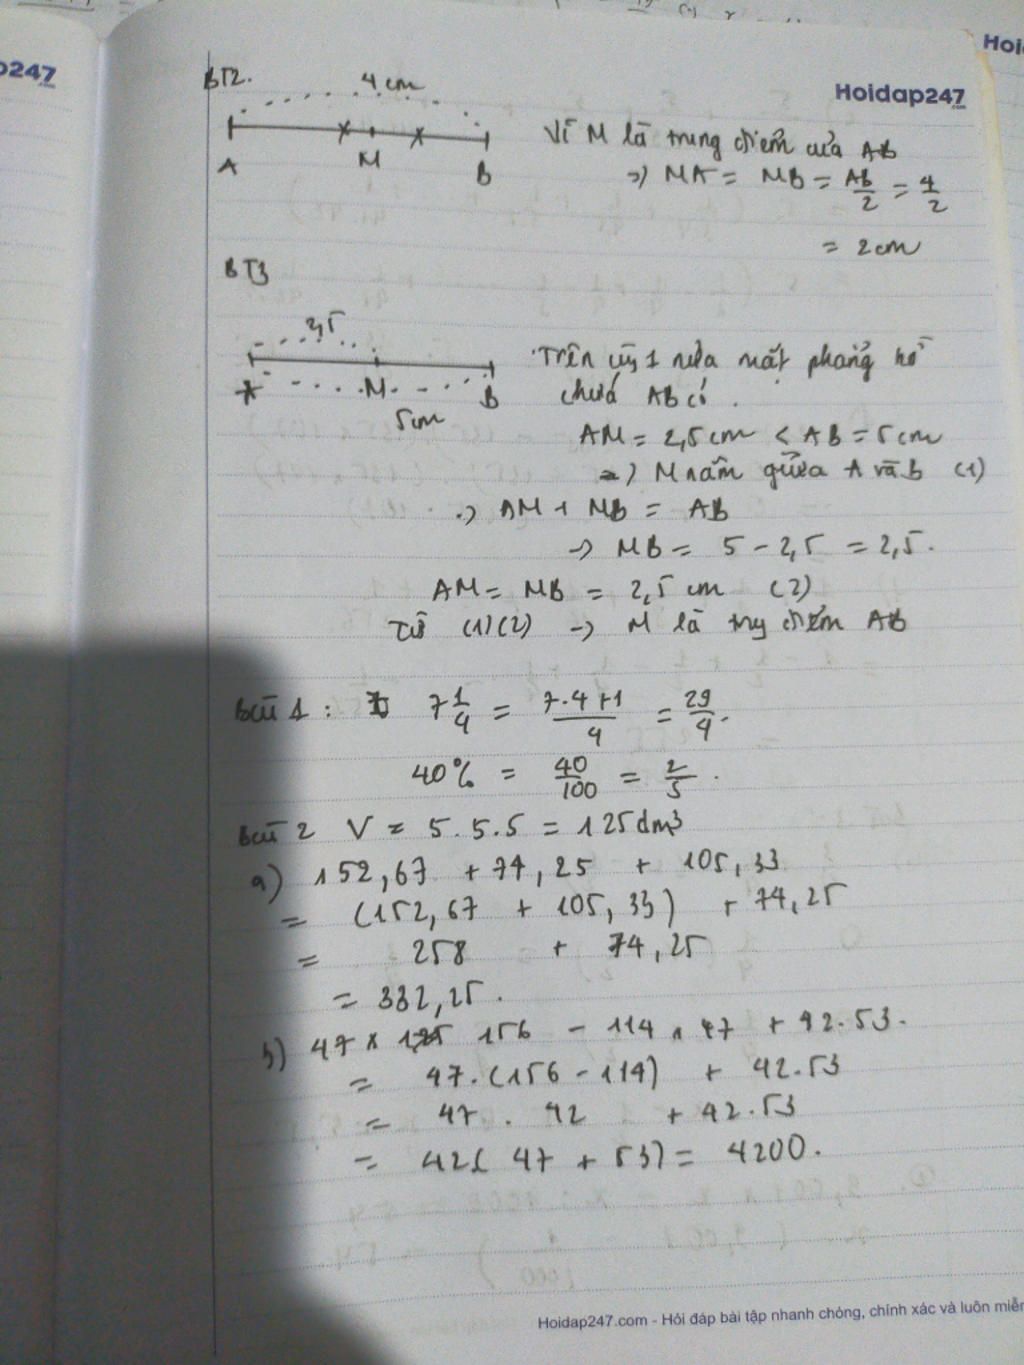 p247
.com
Hoid
Hoidap247
.com
BT2.
4 cm
A M B
Vì M là trung điểm của AB
=> MA = MB = AB/2 = 4/2
= 2cm
BT3
2,5
A M B
5cm
Trên cùng 1 nửa mặt phẳng bờ
chứa AB có.
AM = 2,5cm < AB = 5cm
=> M nằm giữa A và B (1)
=> AM + MB = AB
=> MB = 5 - 2,5 = 2,5.
AM = MB = 2,5 cm (2)
Từ (1)(2) => M là trg điểm AB
Bài 1: 7 1/4 = 7.4+1/4 = 29/4.
40% = 40/100 = 2/5.
Bài 2 V = 5.5.5 = 125dm³
a) 152,67 + 74,25 + 105,33
= (152,67 + 105,33) + 74,25
= 258 + 74,25
= 332,25.
b) 47 x 156 - 114 x 47 + 42.53.
= 47.(156-114) + 42.53
= 47. 42 + 42.53
= 42( 47 + 53) = 4200.
Hoidap247.com - Hỏi đáp bài tập nhanh chóng, chính xác và luôn miễn